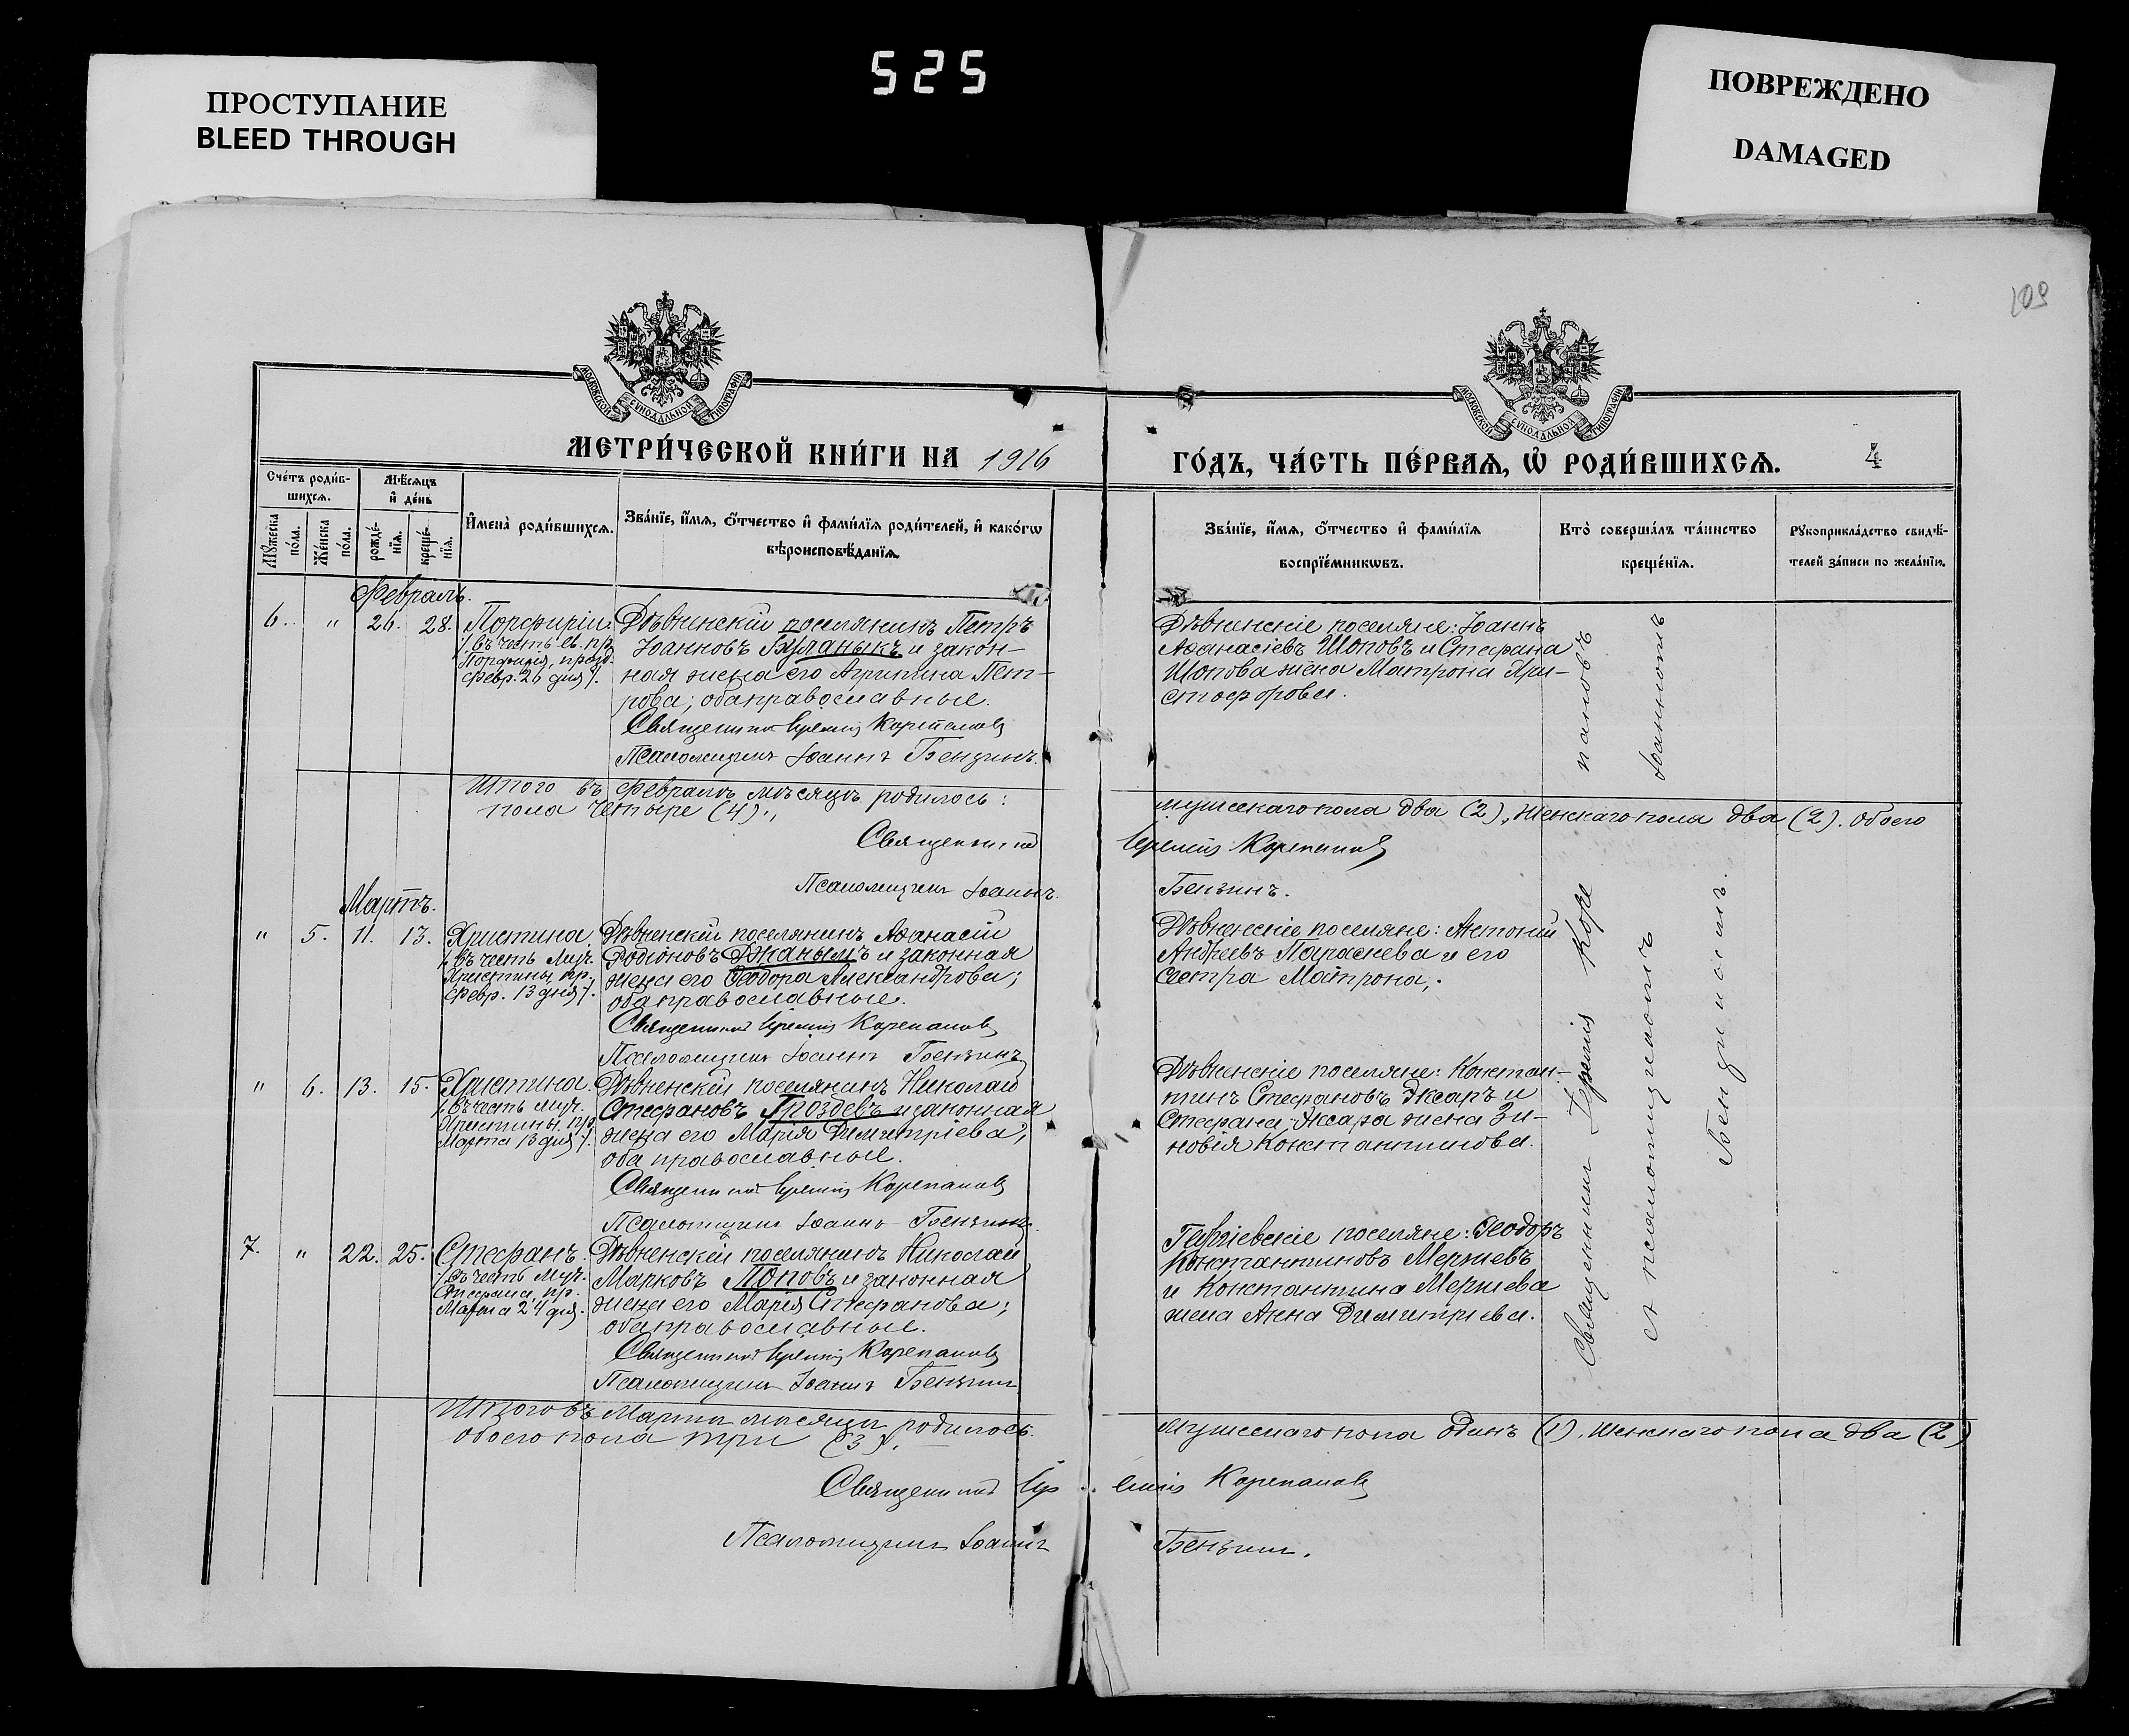 ПРОСТУПАНИЕ
BLEED THROUGH
525
ПОВРЕЖДЕНО
DAMAGED
109
МОСКОВСКОЙ СѴНОДАЛЬНОЙ ТИПОГРАФІИ
МОСКОВСКОЙ СѴНОДАЛЬНОЙ ТИПОГРАФІИ
МЕТРИ́ЧЕСКОЙ КНИ́ГИ НА 1916
ГО́ДЪ, ЧА́СТЬ ПЕ́РВАѦ, Ѡ҆ РОДИ́ВШИХСѦ. 4
Сче́тъ роди́в-
шихсѧ.
Мѣ́сѧцъ
и҆ де́нь
Мꙋ́жеска
по́ла.
Же́нска
по́ла.
рожде́-
нїѧ.
креще́-
нїѧ.
И҆мена̀ роди́вшихсѧ.
Зва́нїе, и҆́мѧ, ѻ҆́тчество и҆ фами́лїѧ роди́телей, и҆ како́гѡ
вѣроисповѣ́данїѧ.
Зва́нїе, и҆́мѧ, ѻ҆́тчество и҆ фами́лїѧ
воспрїе́мникѡвъ.
Кто̀ соверша́лъ та́инство
креще́нїѧ.
Рꙋкоприкла́дство свидѣ́-
телей за́писи по жела́нїю.
Февраль.
6. " 26. 28. Порфирій
/. въ честь св. пр.
Порфирія, празд.
Февр. 26 дня /.
Дѣвненскій поселянинъ Петръ
Іоанновъ Буланыкъ и закон-
ная жена его Агрипина Пет-
рова; оба православные.
Священникъ Іеремія Корепановъ
Псаломщикъ Іоаннъ Бензинъ.
Дѣвненскіе поселяне: Іоаннъ
Афанасіевъ Шоповъ и Стефана
Шопова жена Матрона Хри-
стофорова.
Итого въ Февралѣ мѣсяцѣ родилось:
мужескаго пола два (2), женскаго пола два (2). Обоего
пола четыре (4).
Священникъ Іеремія Корепановъ
Псаломщикъ Іоаннъ Бензинъ.
Мартъ.
" 5. 11. 13. Христина
/. въ честь муч.
Христины, пр.
Февр. 13 дня /.
Дѣвненскій поселянинъ Афанасій
Родіоновъ Джанымъ и законная
жена его Феодора Александрова;
оба православные.
Священникъ Іеремія Корепановъ
Псаломщикъ Іоаннъ Бензинъ
Дѣвненскіе поселяне: Антоній
Андреевъ и его
сестра Матрона.
" 6. 13. 15. Христина.
/. въ честь муч.
Христины, пр.
Марта 13 дня /.
Дѣвненскій поселянинъ Николай
Стефановъ Гроздевъ и законная
жена его Марія Димитріева;
оба православные.
Священникъ Іеремія Корепановъ
Псаломщикъ Іоаннъ Бензинъ.
Дѣвненскіе поселяне: Констан-
тинъ Стефановъ Эксаръ и
Стефана Эксара жена Зи-
новія Константинова.
7. " 22. 25. Стефанъ.
/. въ честь муч.
Стефана, пр.
Марта 24 дня.
Дѣвненскій поселянинъ Николай
Марковъ Поповъ и законная
жена его Марія Стефанова;
оба православные.
Священникъ Іеремія Корепановъ
Псаломщикъ Іоаннъ Бензинъ
поселяне: Феодоръ
Константиновъ Мержевъ
и Константина Мержева
жена Анна Димитріева.
Священникъ Іеремія Коре
пановъ
съ псаломщикомъ
Іоанномъ
Бензиномъ.
Итого въ Мартѣ мѣсяцѣ родилось:
мужескаго пола одинъ (1). женскаго пола два (2)
обоего пола три (3).
Священникъ Іеремія Корепановъ
Псаломщикъ Іоаннъ Бензинъ.